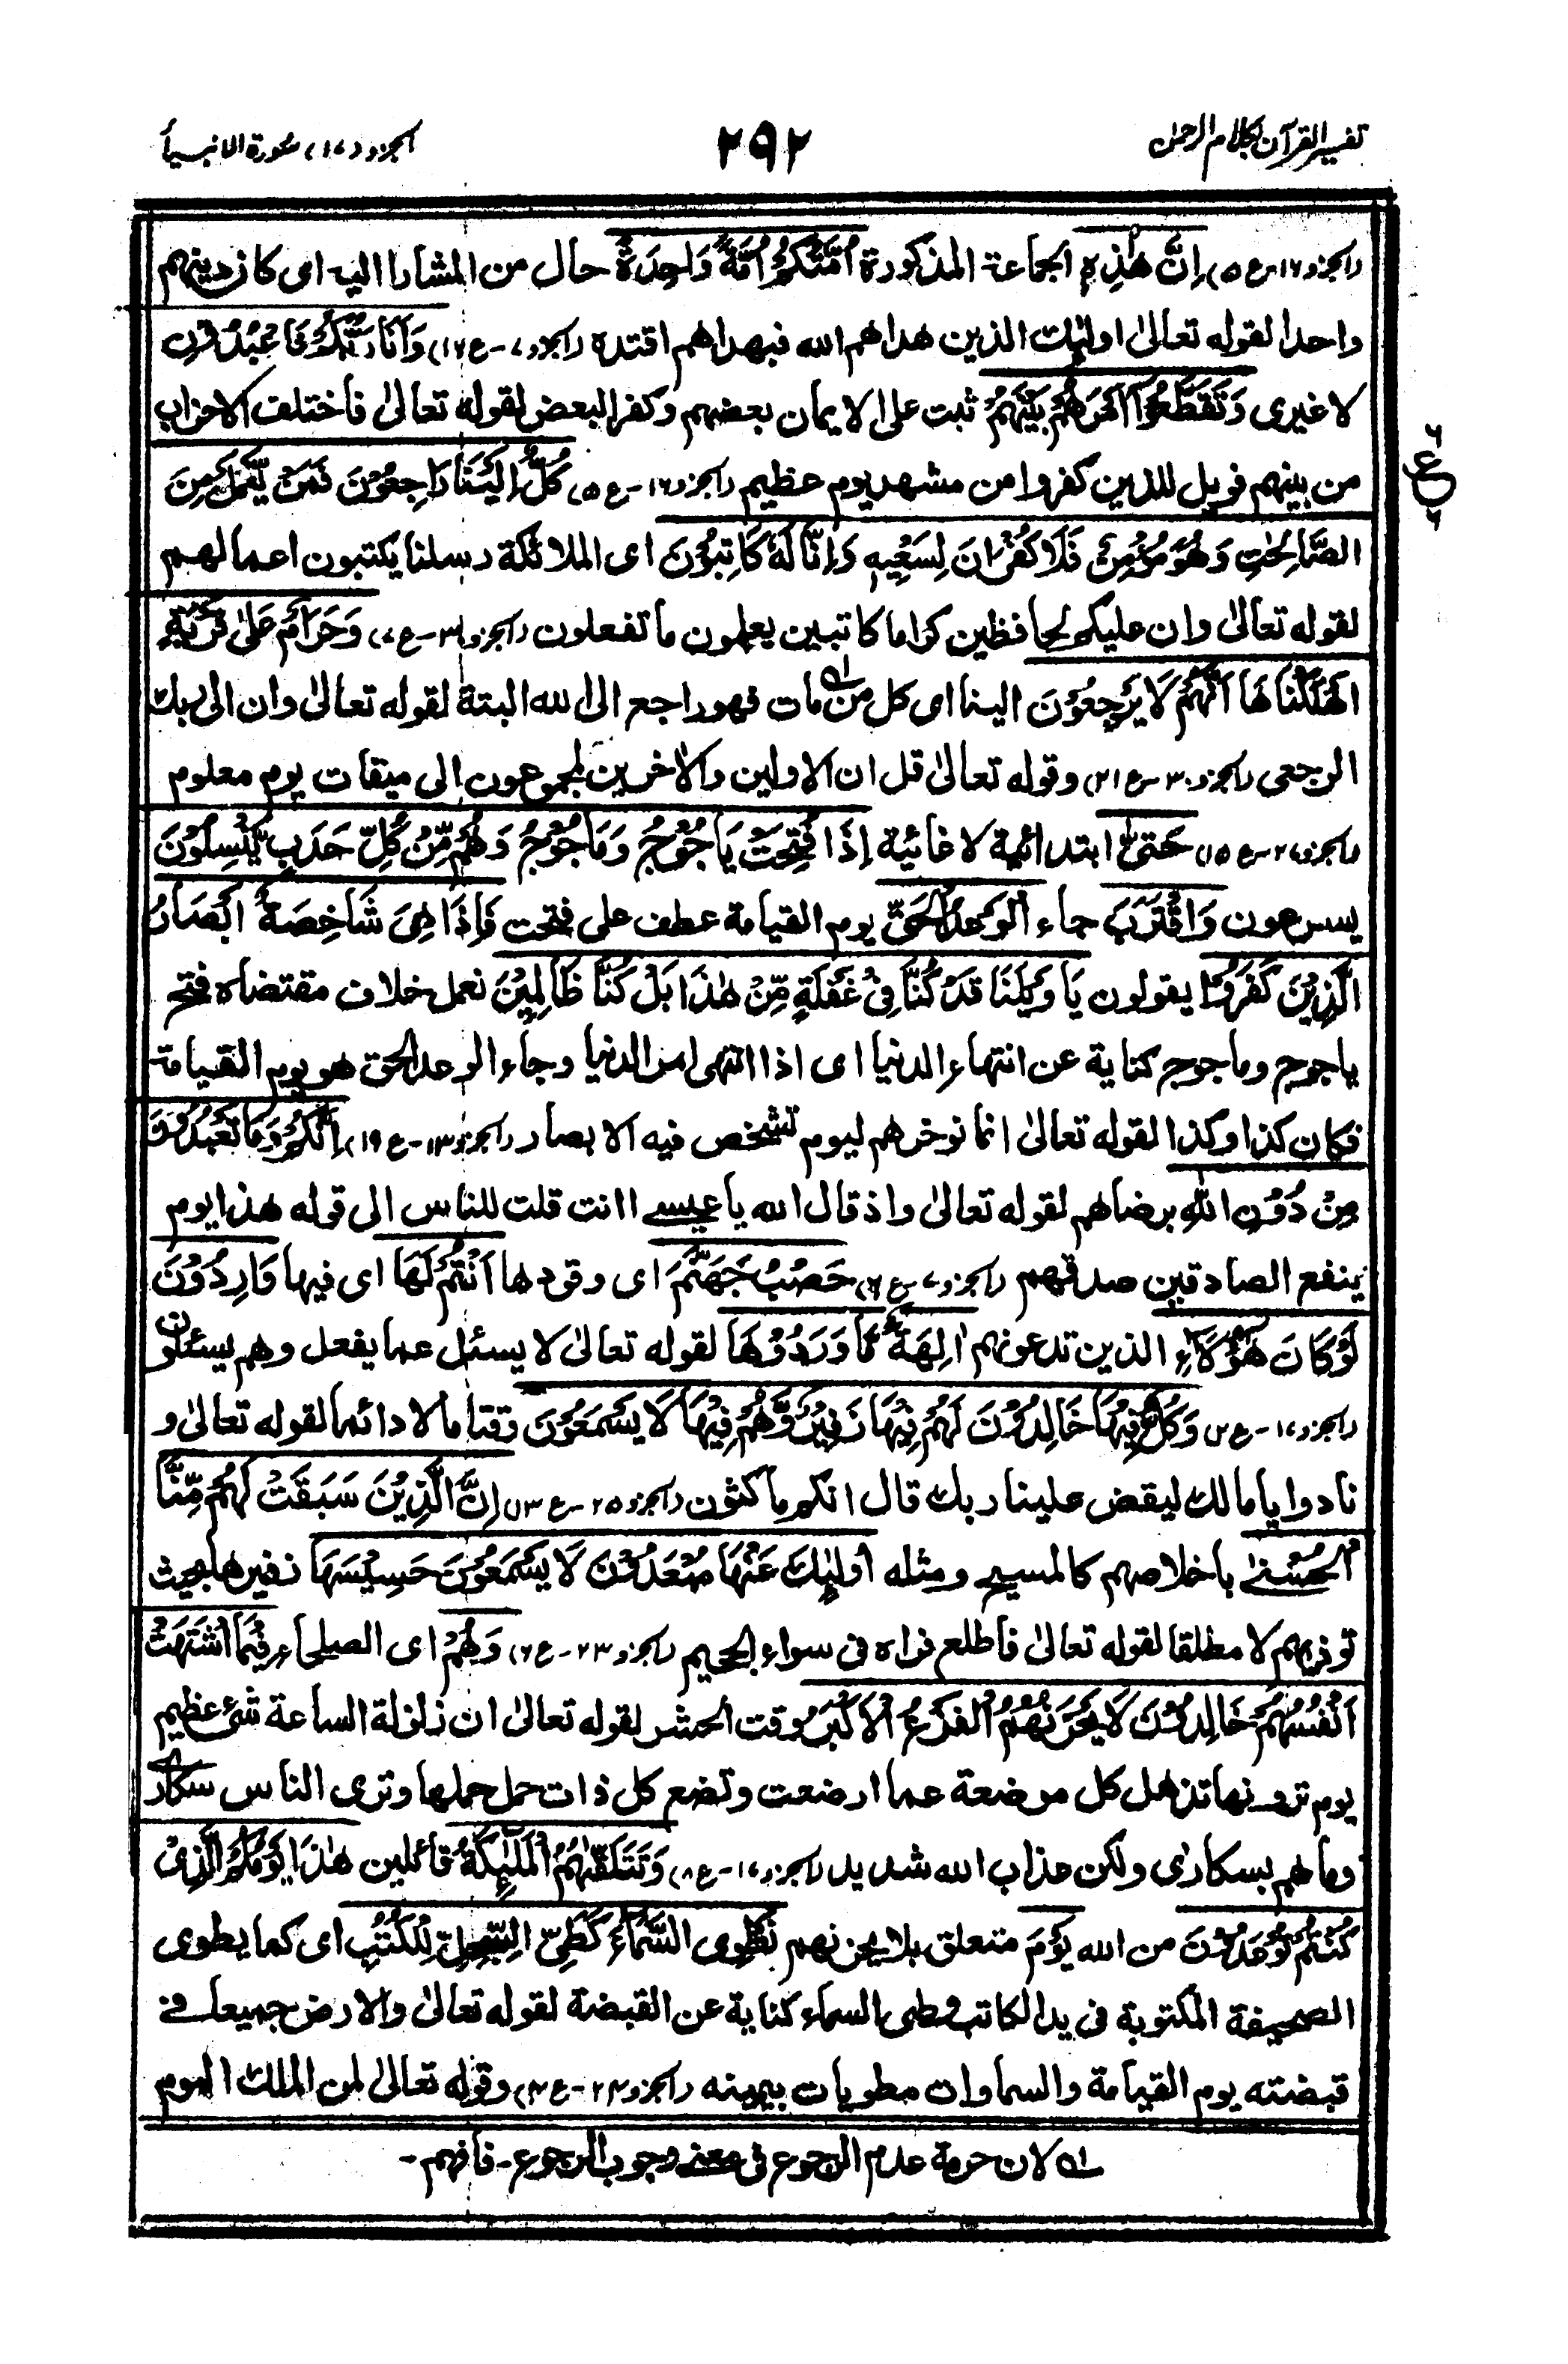 تفسیر القرآن بکلام الرحمٰن
۲۹۲
الجزو (۱۷) سورة الانبیاء
(الجزو ۱۶-ع ۵) اِنَّ هٰذِهٖ الجماعة المذكورة اُمَّتُكُمْ اُمَّةً وَاحِدَةً حال من المشار الیه ای كان دینهم
واحدا لقوله تعالیٰ اولٰئك الذین هداهم الله فبهداهم اقتده (الجزو ۷-ع ۱۶) وَاَنَا رَبُّكُمْ فَاعْبُدُوْنِ
لا غیری وَتَقَطَّعُوْا اَمْرَهُمْ بَیْنَهُمْ ثبت علی الایمان بعضهم وكفر البعض لقوله تعالیٰ فاختلف الاحزاب
من بینهم فویل للذین كفروا من مشهد یوم عظیم (الجزو ۱۶-ع ۵) كُلٌّ اِلَیْنَا رَاجِعُوْنَ فَمَنْ یَّعْمَلْ مِنَ
الصَّالِحٰتِ وَهُوَ مُؤْمِنٌ فَلَا كُفْرَانَ لِسَعْیِهٖ وَاِنَّا لَهٗ كَاتِبُوْنَ ای الملائكة رسلنا یكتبون اعمالهم
لقوله تعالیٰ وان علیكم لحافظین كراما كاتبین یعلمون ما تفعلون (الجزو ۳۰-ع ۷) وَحَرَامٌ عَلٰی قَرْیَةٍ
اَهْلَكْنَاهَا اَنَّهُمْ لَا یَرْجِعُوْنَ الینا ای كل من مات فهو راجع الی الله البتة لقوله تعالیٰ وان الیٰ ربك
الرجعی (الجزو ۳۰-ع ۲۱) وقوله تعالیٰ قل ان الاولین والاٰخرین لمجموعون الی میقات یوم معلوم
(الجزو ۲۷-ع ۱۵) حَتّٰی ابتدائیة لا غائیة اِذَا فُتِحَتْ یَاجُوْجُ وَمَاجُوْجُ وَهُمْ مِّنْ كُلِّ حَدَبٍ یَّنْسِلُوْنَ
یسرعون وَاقْتَرَبَ جاء الْوَعْدُ الْحَقُّ یوم القیامة عطف علی فتحت فَاِذَا هِیَ شَاخِصَةٌ اَبْصَارُ
الَّذِیْنَ كَفَرُوْا یقولون یَا وَیْلَنَا قَدْ كُنَّا فِیْ غَفْلَةٍ مِّنْ هٰذَا بَلْ كُنَّا ظَالِمِیْنَ نعمل خلاف مقتضاه فتح
یاجوج وماجوج كنایة عن انتهاء الدنیا ای اذا انتهی امر الدنیا وجاء الوعد الحق هو یوم القیامة
فكان كذا وكذا لقوله تعالیٰ انما نوخرهم لیوم تشخص فیه الابصار (الجزو ۱۳-ع ۱۹) اِنَّكُمْ وَمَا تَعْبُدُوْنَ
مِنْ دُوْنِ اللّٰهِ برضاهم لقوله تعالیٰ واذ قال الله یا عیسی اانت قلت للناس الی قوله هذا یوم
ینفع الصادقین صدقهم (الجزو ۷-ع ۶) حَصَبُ جَهَنَّمَ ای وقودها اَنْتُمْ لَهَا ای فیها وَارِدُوْنَ
لَوْ كَانَ هٰؤُلَاءِ الذین تدعونهم اٰلِهَةً مَّا وَرَدُوْهَا لقوله تعالیٰ لا یسئل عما یفعل وهم یسئلون
(الجزو ۱۷-ع ۲) وَكُلٌّ فِیْهَا خَالِدُوْنَ لَهُمْ فِیْهَا زَفِیْرٌ وَّهُمْ فِیْهَا لَا یَسْمَعُوْنَ وقتا ما لا دائما لقوله تعالیٰ و
نادوا یا مالك لیقض علینا ربك قال انكم ماكثون (الجزو ۲۵-ع ۱۳) اِنَّ الَّذِیْنَ سَبَقَتْ لَهُمْ مِّنَّا
الْحُسْنٰی باخلاصهم كالمسیح ومثله اُولٰئِكَ عَنْهَا مُبْعَدُوْنَ لَا یَسْمَعُوْنَ حَسِیْسَهَا زفیرها بحیث
توذیهم لا مطلقا لقوله تعالیٰ فاطلع فراه فی سواء الجحیم (الجزو ۲۳-ع ۶) وَهُمْ ای الصلحاء فِیْمَا اشْتَهَتْ
اَنْفُسُهُمْ خَالِدُوْنَ لَا یَحْزُنُهُمُ الْفَزَعُ الْاَكْبَرُ وقت الحشر لقوله تعالیٰ ان زلزلة الساعة شیء عظیم
یوم ترونها تذهل كل مرضعة عما ارضعت وتضع كل ذات حمل حملها وتری الناس سكاری
وما هم بسكاریٰ ولكن عذاب الله شدید (الجزو ۱۷-ع ۸) وَتَتَلَقّٰهُمُ الْمَلٰئِكَةُ قائلین هٰذَا یَوْمُكُمُ الَّذِیْ
كُنْتُمْ تُوْعَدُوْنَ من الله یَوْمَ متعلق بلا یحزنهم نَطْوِی السَّمَاءَ كَطَیِّ السِّجِلِّ لِلْكُتُبِ ای كما یطوی
الصحیفة المكتوبة فی ید الكاتب وطی السماء كنایة عن القبضة لقوله تعالیٰ والارض جمیعا فی
قبضته یوم القیامة والسماوات مطویات بیمینه (الجزو ۲۴-ع ۴) وقوله تعالیٰ لمن الملك الیوم
لان حرمة عدم الرجوع فی معنی وجوب الرجوع - فافهم -
۶
ع
۶